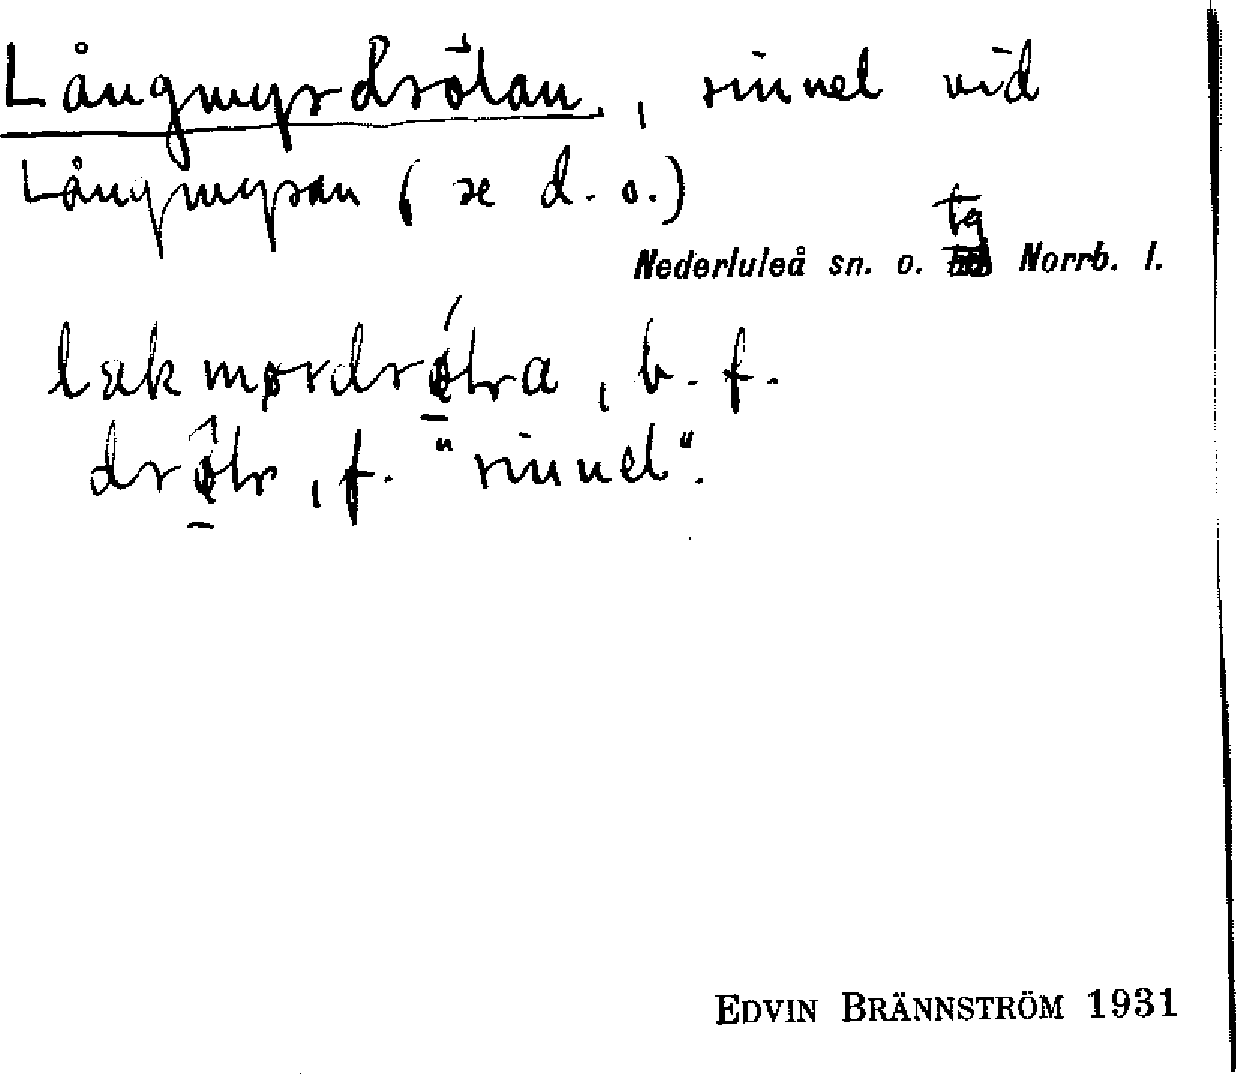 Långmyrdrölan, rinnel vid
Långmyran (se d. o.)
tg
Nederluleå sn. o. Norrb. l.
b. f.
f. "rinnel".
EDVIN BRÄNNSTRÖM 1931